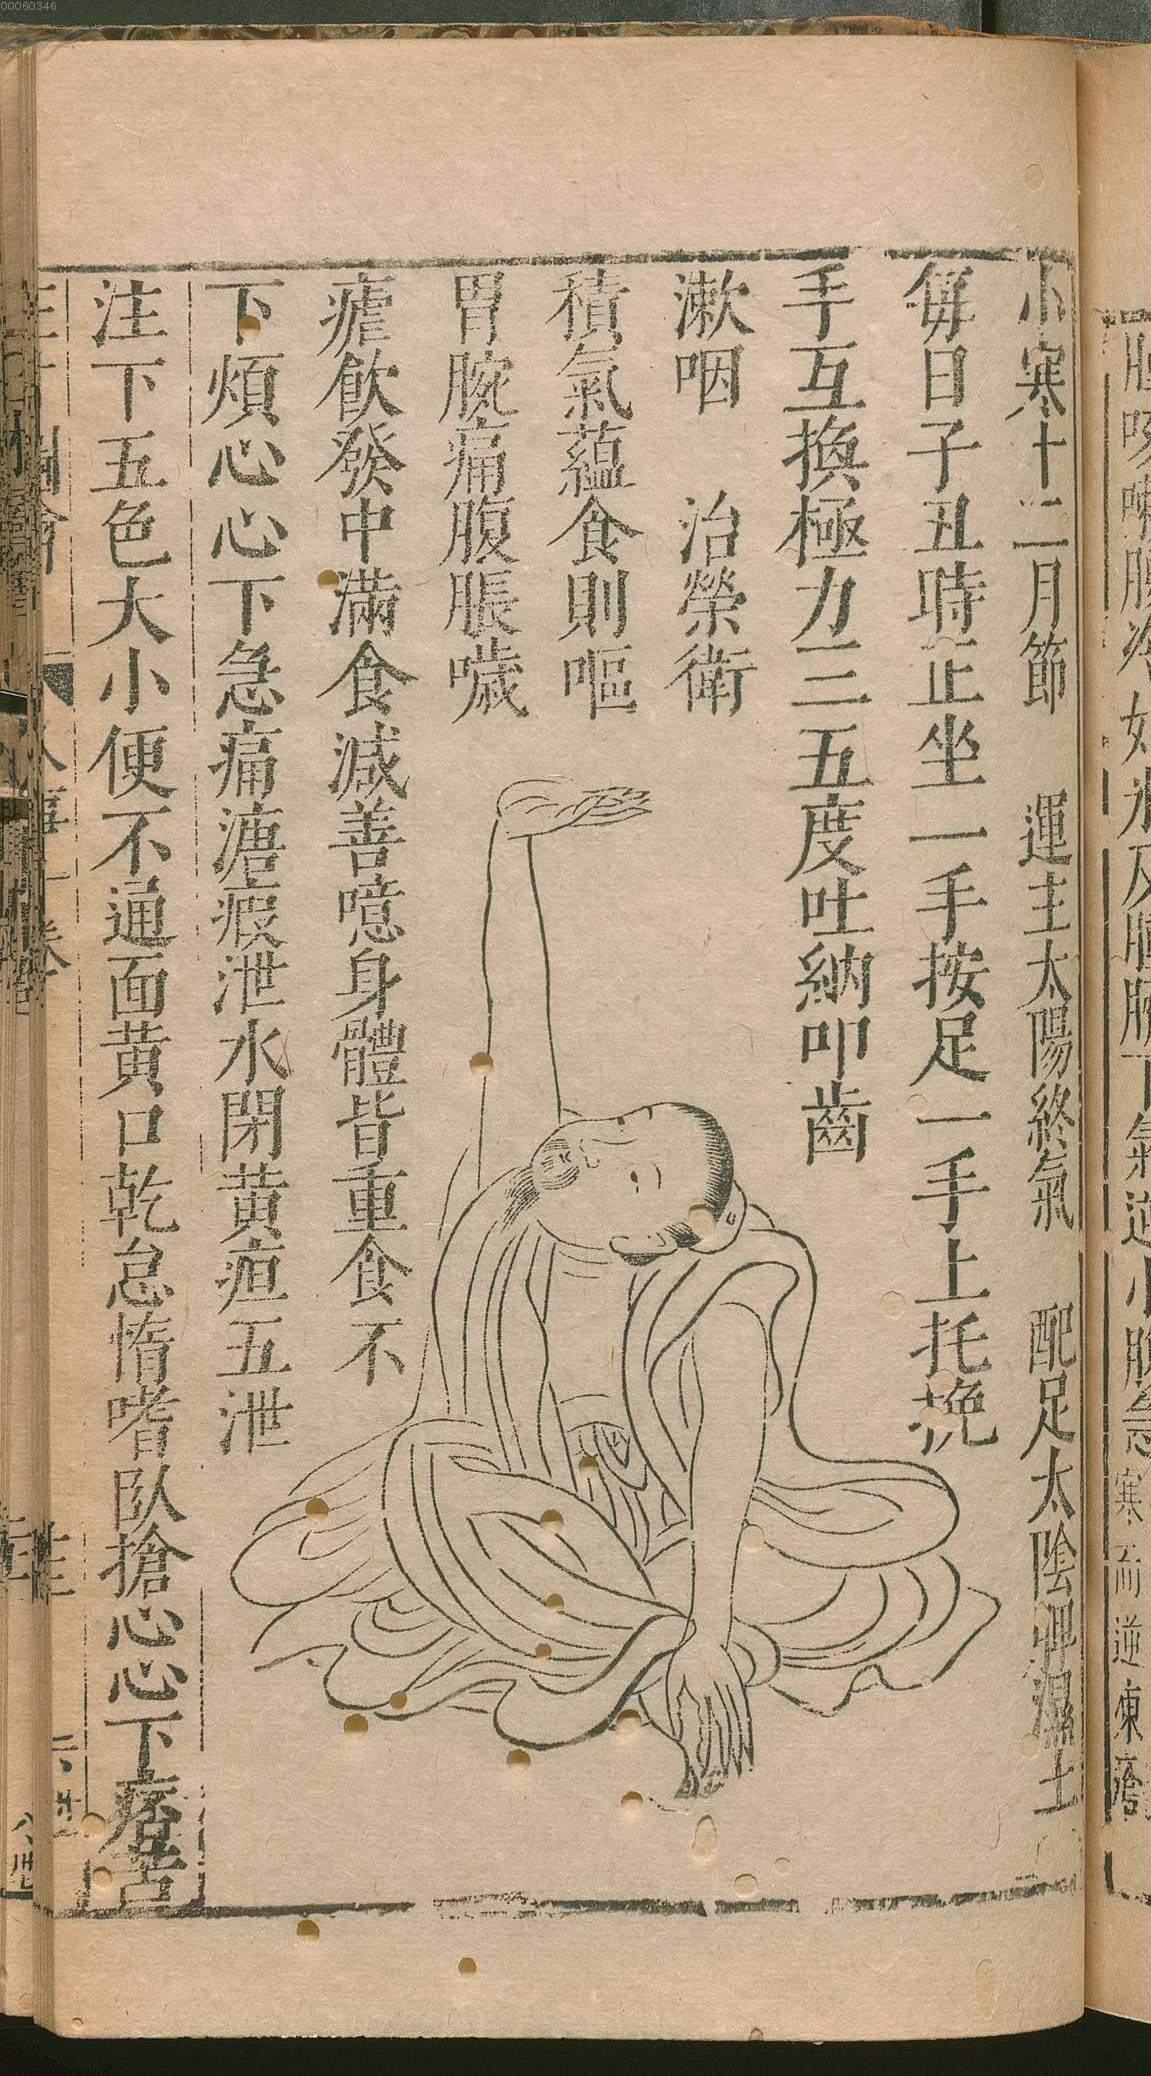 00060346
小寒十二月節 運主太陽終氣 配足太陰脾濕土
每日子丑時正坐一手按足一手上托挽
手互換極力三五度吐納叩齒
漱咽 治榮衛
積氣蘊食則嘔
胃脘痛腹脹噦
瘧飲發中滿食減善噫身體皆重食不
下煩心心下急痛溏瘕泄水閉黃疸五泄
注下五色大小便不通面黃口乾怠惰嗜臥搶心心下痞苦